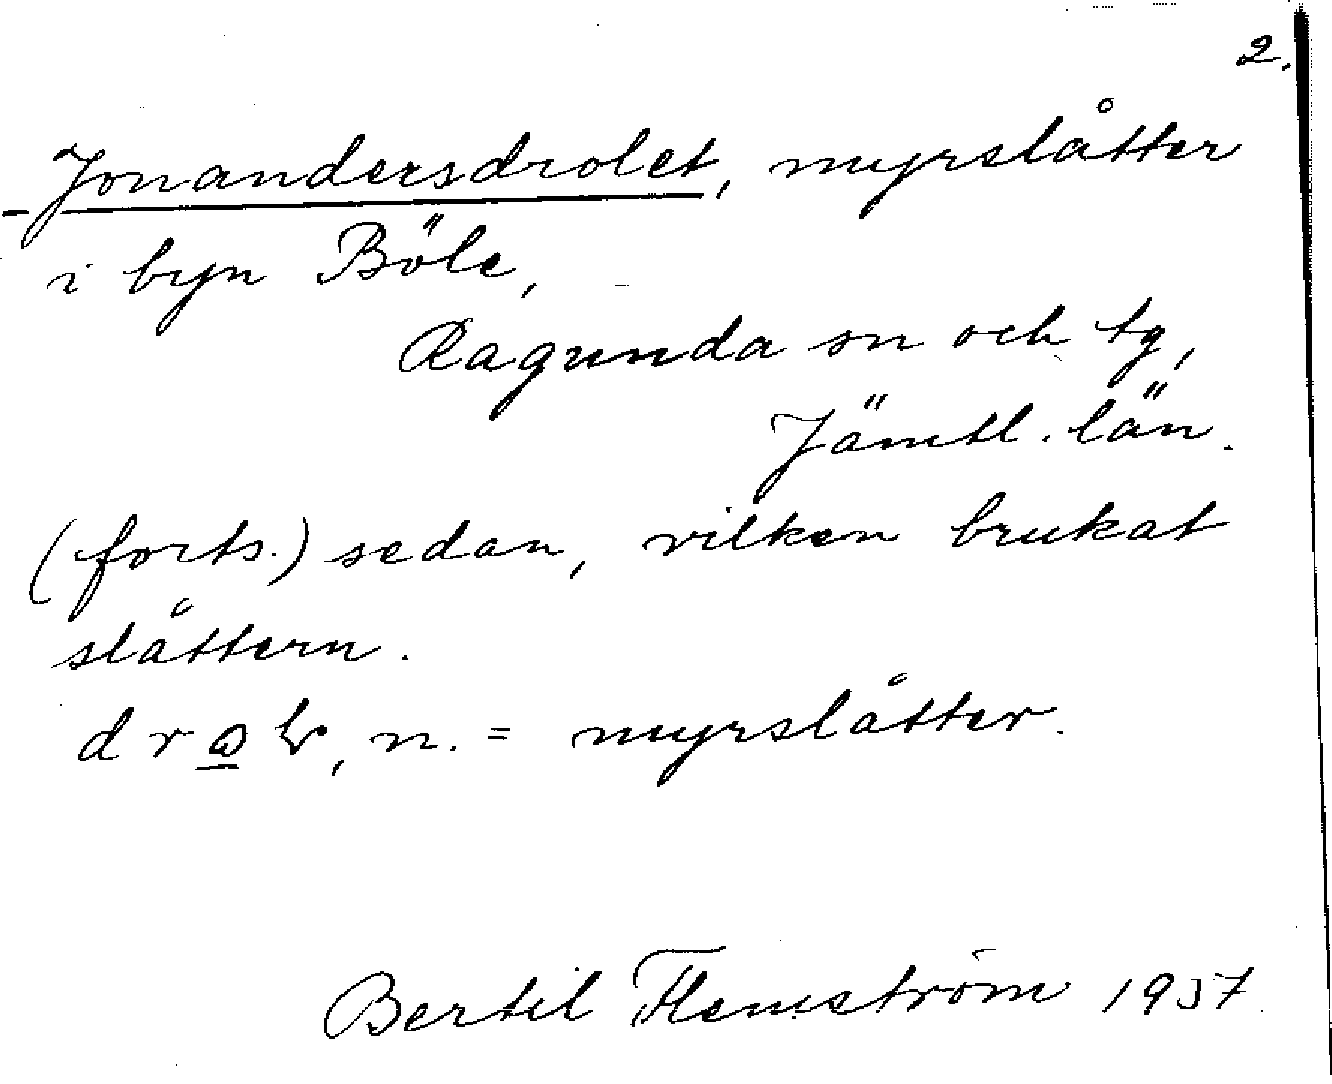 2.
Jonandersdrolet, myrslåtter
i byn Böle,
Ragunda sn och tg,
Jämtl. län.
(forts.) sedan, vilken brukat
slåttern.
n. = myrslåtter.
Bertil Flemström 1957